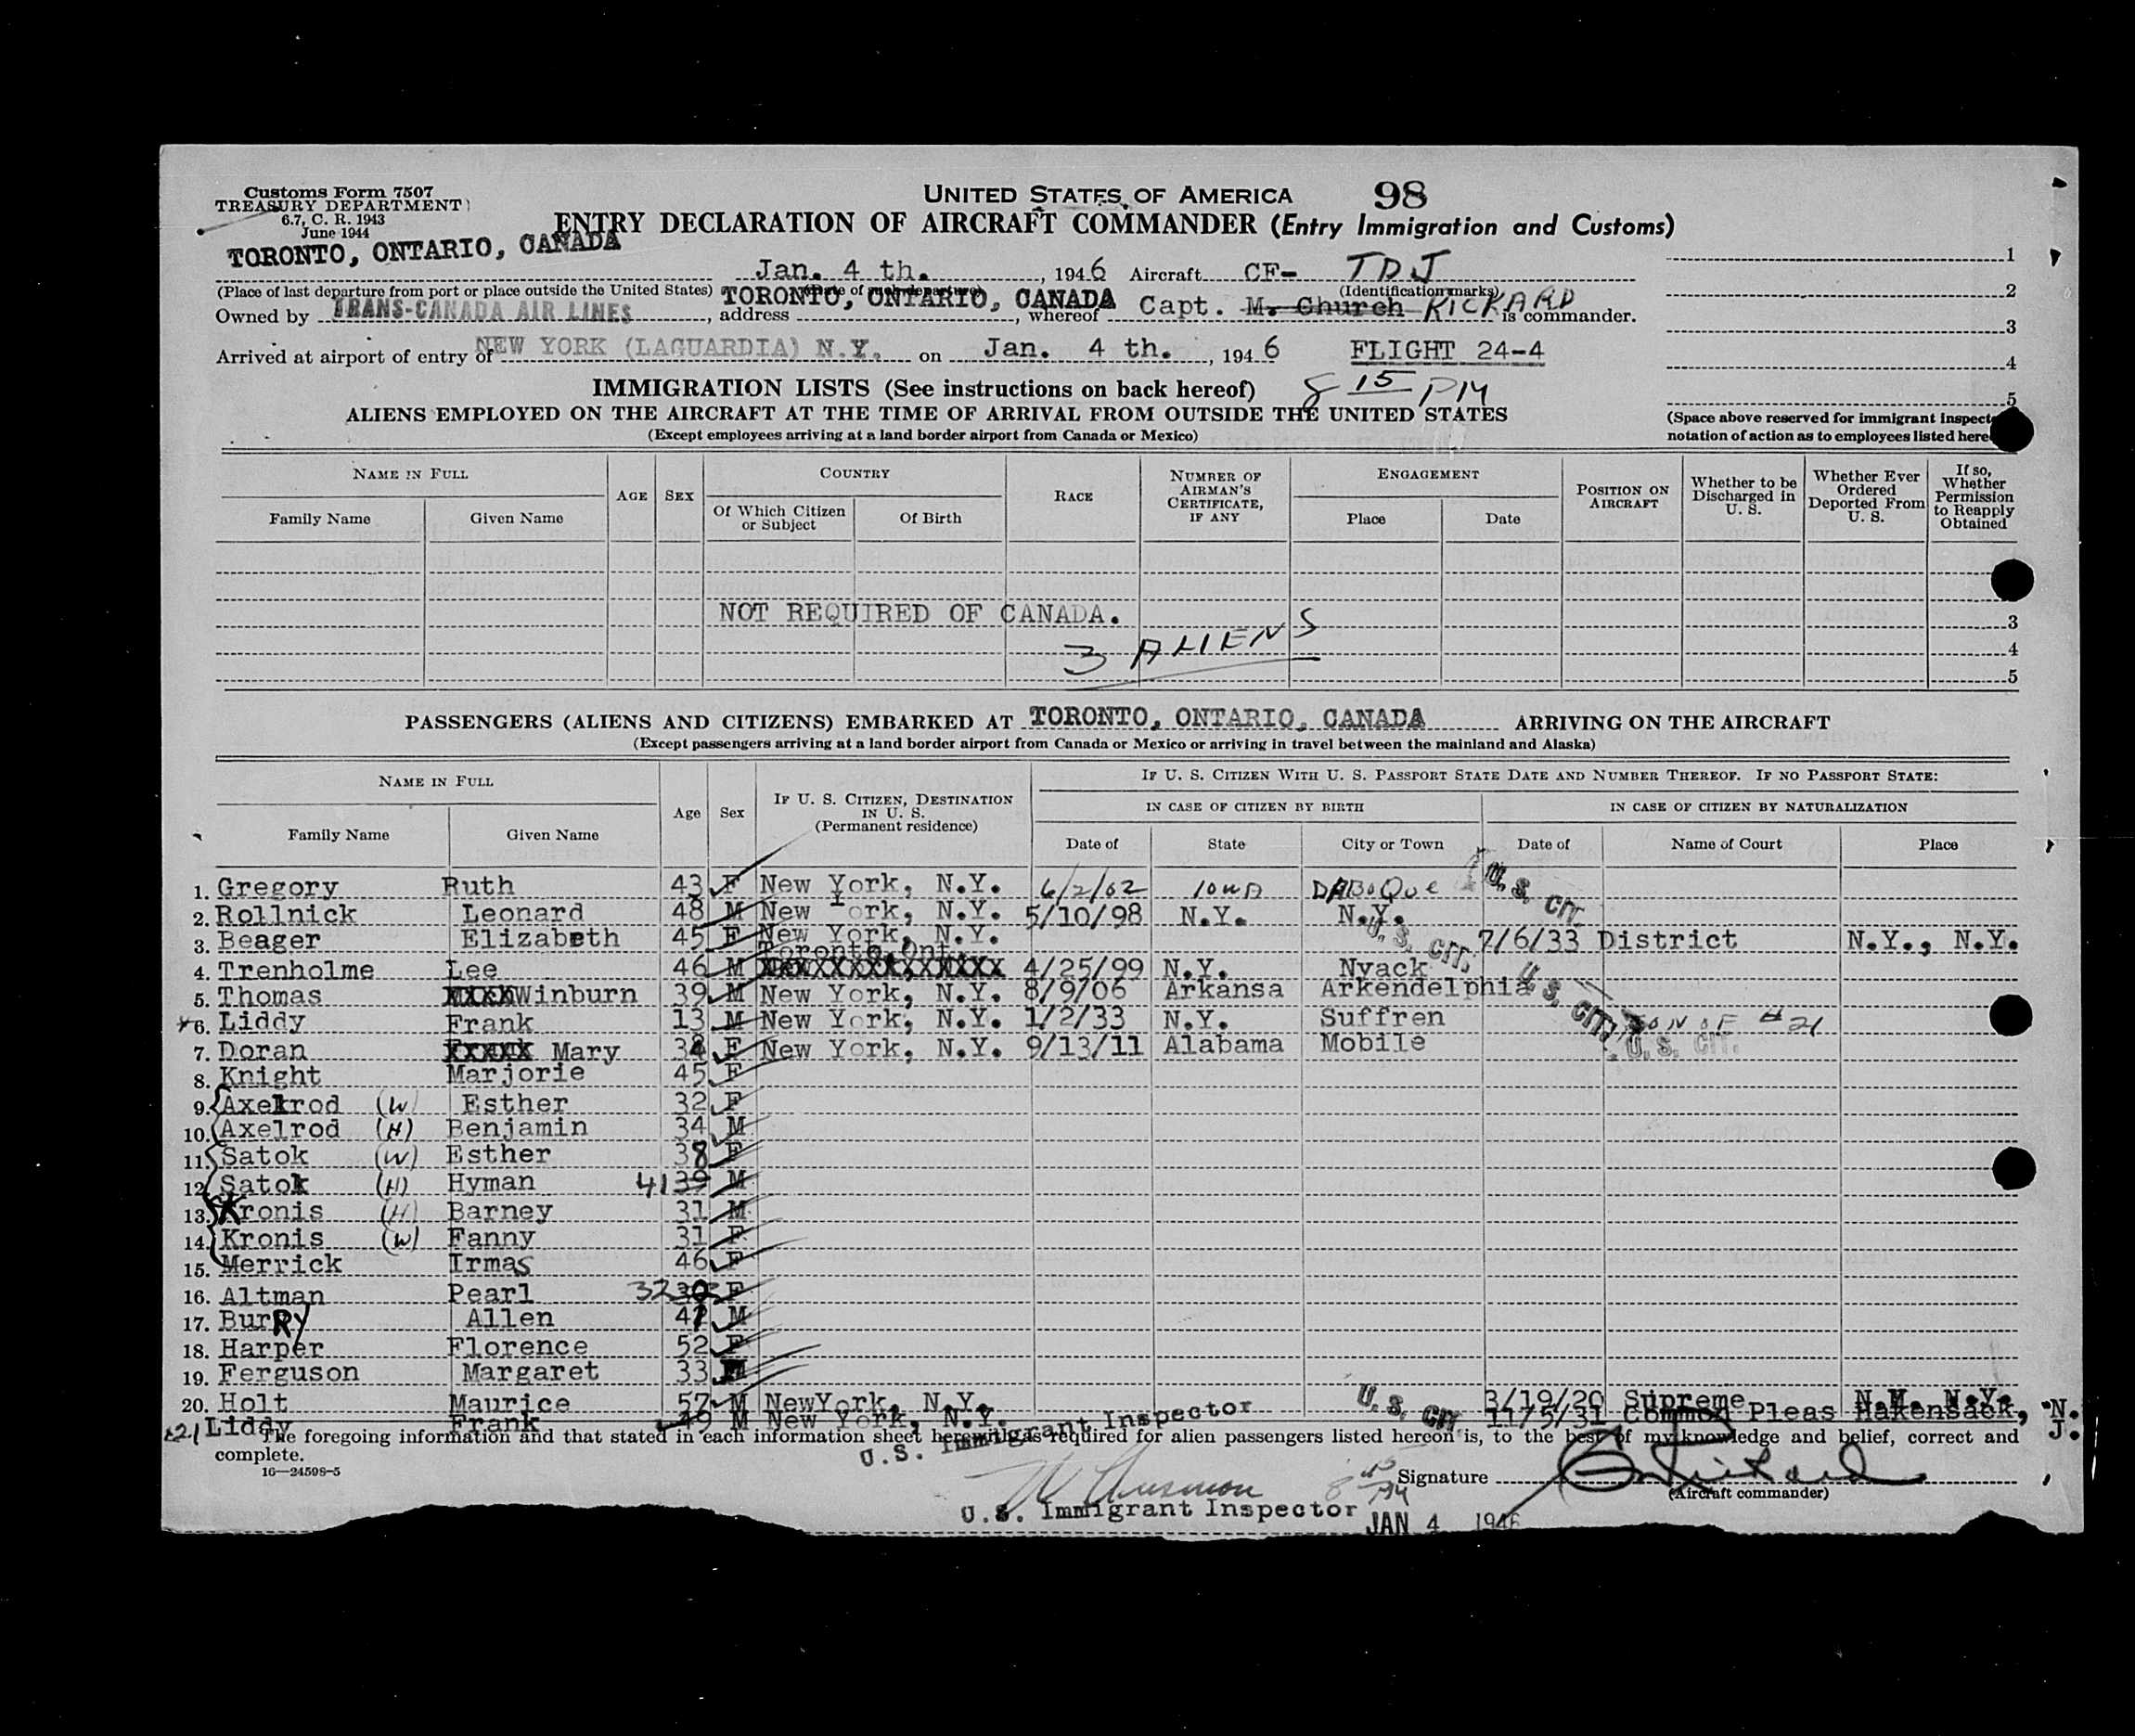 Customs Form 7507
TREASURY DEPARTMENT
6.7, C. R. 1943
June 1944
UNITED STATES OF AMERICA 98
ENTRY DECLARATION OF AIRCRAFT COMMANDER (Entry Immigration and Customs)
TORONTO, ONTARIO, CANADA Jan. 4 th. , 1946 Aircraft CF- TDJ
(Place of last departure from port or place outside the United States) (Date of such departure) (Identification marks)
Owned by TRANS-CANADA AIR LINES, address TORONTO, ONTARIO, CANADA, whereof Capt. M. Church RICKARD is commander.
Arrived at airport of entry of NEW YORK (LAGUARDIA) N.Y. on Jan. 4 th. , 1946 FLIGHT 24-4
1
2
3
4
5
IMMIGRATION LISTS (See instructions on back hereof) 8 15 PM
ALIENS EMPLOYED ON THE AIRCRAFT AT THE TIME OF ARRIVAL FROM OUTSIDE THE UNITED STATES
(Except employees arriving at a land border airport from Canada or Mexico)
(Space above reserved for immigrant inspect
notation of action as to employees listed here
NAME IN FULL
Family Name Given Name
AGE SEX
COUNTRY
Of Which Citizen or Subject Of Birth
RACE
NUMBER OF AIRMAN'S CERTIFICATE, IF ANY
ENGAGEMENT
Place Date
POSITION ON AIRCRAFT
Whether to be Discharged in U. S.
Whether Ever Ordered Deported From U. S.
If so, Whether Permission to Reapply Obtained
NOT REQUIRED OF CANADA. 3
3 ALIENS 4
5
PASSENGERS (ALIENS AND CITIZENS) EMBARKED AT TORONTO, ONTARIO, CANADA ARRIVING ON THE AIRCRAFT
(Except passengers arriving at a land border airport from Canada or Mexico or arriving in travel between the mainland and Alaska)
NAME IN FULL
Family Name Given Name
Age Sex
IF U. S. CITIZEN, DESTINATION IN U. S. (Permanent residence)
IF U. S. CITIZEN WITH U. S. PASSPORT STATE DATE AND NUMBER THEREOF. IF NO PASSPORT STATE:
IN CASE OF CITIZEN BY BIRTH IN CASE OF CITIZEN BY NATURALIZATION
Date of State City or Town Date of Name of Court Place
1. Gregory Ruth 43 F New York, N.Y. 6/2/02 IOWA DABOQUE U. S. CIT.
2. Rollnick Leonard 48 M New York, N.Y. 5/10/98 N.Y. N.Y.
3. Beager Elizabeth 45 F New York, N.Y. U. S. CIT. 7/6/33 District N.Y., N.Y.
Toronto, Ont.
4. Trenholme Lee 46 M 4/25/99 N.Y. Nyack
5. Thomas XXXXWinburn 39 M New York, N.Y. 8/9/06 Arkansa Arkendelphia U. S. CIT.
6. Liddy Frank 13 M New York, N.Y. 1/2/33 N.Y. Suffren SON OF #21
7. Doran XXXXX Mary 34 F New York, N.Y. 9/13/11 Alabama Mobile U. S. CIT.
8. Knight Marjorie 45 F
9. Axelrod (W) Esther 32 F
10. Axelrod (H) Benjamin 34 M
11. Satok (W) Esther 38 F
12 Satok (H) Hyman 41 39 M
13. Kronis (H) Barney 31 M
14. Kronis (W) Fanny 31 F
15. Merrick Irmas 46 F
16. Altman Pearl 32 F
17. BurRy Allen M
18. Harper Florence 52 F
19. Ferguson Margaret 33
20. Holt Maurice 57 M NewYork, N.Y. U. S. CIT 3/19/20 Supreme N.Y. N.Y.
21 Liddy Frank 49 M New York, N.Y. 11/5/31 Common Pleas Hakensack, N. J.
The foregoing information and that stated in each information sheet herewith as required for alien passengers listed hereon is, to the best of my knowledge and belief, correct and
complete.
16—24598-5
U.S. Immigrant Inspector
8 15 PM
Signature
(Aircraft commander)
U.S. Immigrant Inspector
JAN 4 1946